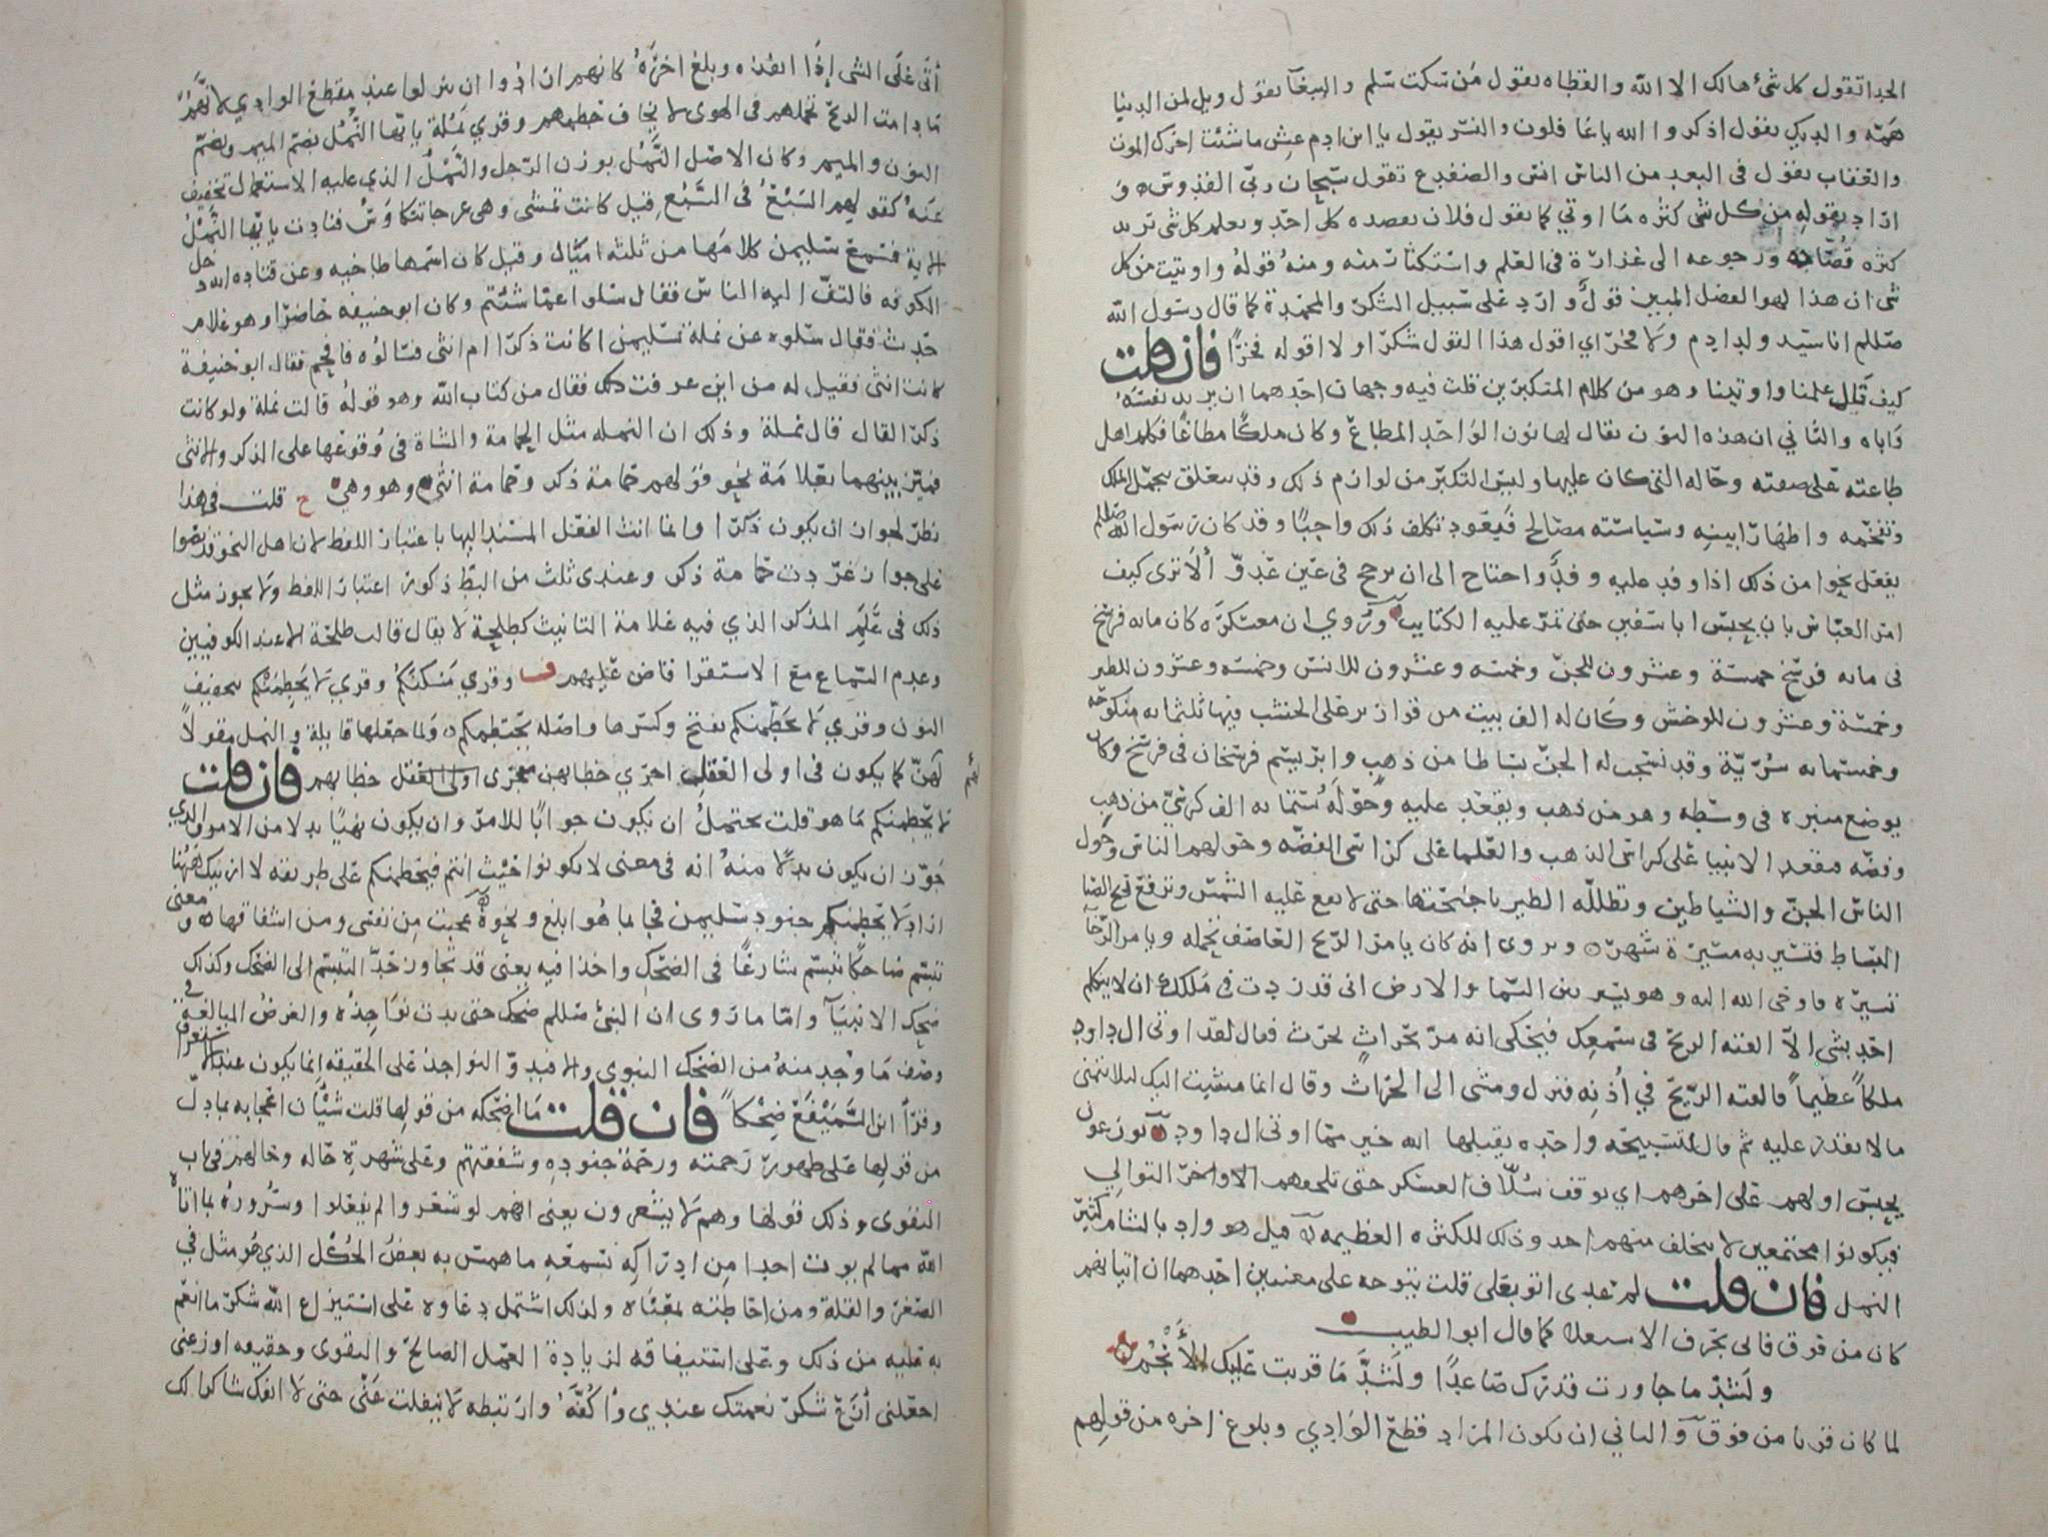 الحدا تقول كل شئ هالك الا الله والقطاه يقول من سكت سلم والببغآ يقول ويل لمن الدنيا
همه والديك يقول اذكروا الله يا غافلون والنسر يقول يا ابن ادم عش ما شئت اخرك الموت
والعقاب يقول فى البعد من الناس انس والضفدع تقول سبحان ربى القدوس و
اراد بقوله من كل شى كثره ما اوتي كما يقول فلان يقصده كل احد ويعلم كل شى تريد
كثره قصاده ورجوعه الى غزارة فى العلم واستكثار منه ومنه قوله واوتيت من كل
شى ان هذا لهو الفضل المبين قول وارد على سبيل الشكر والمحمدة كما قال رسول الله
صللم انا سيد ولد ادم ولا فخر اي اقول هذا القول شكرا ولا اقوله فخرا فان قلت
كيف قال علمنا واوتينا وهو من كلام المتكبرين قلت فيه وجهان احدهما ان يريد نفسه
واباه والثاني ان هذه النون يقال لها نون الواحد المطاع وكان ملكا مطاعا فكلم اهل
طاعته على صفته وحاله التى كان عليها وليس التكبر من لوازم ذلك وقد يتعلق بتجمل الملك
وتفخمه واظهار ابينه وسياسته مصالح فيعود تكلف ذلك واجبا وقد كان رسول الله صللم
يفعل نحوا من ذلك اذا وفد عليه وفد او احتاج الى ان يرجح فى عين عدو ألا ترى كيف
امر العباس بان يحبس ابا سفين حتى تمر عليه الكتايب وروي ان معسكره كان مايه فرسخ
فى مايه فرسخ خمسة وعشرون للجن وخمسه وعشرون للانس وخمسه وعشرون للطير
وخمسة وعشرون للوحش وكان له الف بيت من قوارير على الخشب فيها ثلثمايه منكوحه
وخمستمايه سرية وقد نسجت له الجن بساطا من ذهب وابريسم فرسخان فى فرسخ وكان
يوضع منبره فى وسطه وهو من ذهب ويقعد عليه وحوله ستمايه الف كرسي من ذهب
وفضه فيقعد الانبيا على كراسى الذهب والعلما على كراسى الفضه وحولهم الناس وحول
الناس الجن والشياطين وتظلله الطير باجنحتها حتى لا يقع عليه الشمس وترفع ريح الصبا
البساط فتسير به مسيرة شهره ويروى انه كان يامر الريح العاصف تحمله ويامر الرخآ
تسيره فاوحى الله اليه وهو يسير بين السمآ والارض انى قد زدت فى ملكك ان لا يتكلم
احد بشى الا القته الريح فى سمعك فيحكى انه مر بحراث يحرث فقال لقد اوتى ال داود
ملكا عظيما فالقته الريح في أذنه فنزل ومشى الى الحراث وقال انما مشيت اليك ليلا تتمنى
ما لا تقدر عليه ثم قال لتسبيحه واحده يقبلها الله خير مما اوتى ال داود يوزعون
يحبس اولهم على اخرهم اي يوقف سلاف العسكر حتى تلحقهم الاواخر التوالي
فيكونوا مجتمعين لا يتخلف منهم احد وذلك للكثره العظيمه قيل هو واد بالشام كثير
النمل فان قلت لم عدى اتو بعلى قلت يتوجه على معنيين احدهما ان اتيانهم
كان من فوق فاتى بحرف الاستعلا كما قال ابو الطيب
ولشد ما جاورت قدرك صاعدا ولشد ما قربت عليك الأنجم
لما كان قربا من فوق والثاني ان يكون المراد قطع الوادي وبلوغ اخره من قولهم
أتى على الشى إذا انفذه وبلغ اخره كانهم ارادوا ان ينزلوا عند مقطع الوادي لانهم
ما دامت الريح تحملهم فى الهوى لا يخاف حطمهم وقري نملة يا تها النمل بضم الميم وبضم
النون والميم وكان الاصل النمل بوزن الرجل والنمل الذي عليه الاستعمال تخفيف
عنه كقولهم السبع فى السبع قيل كانت تمشى وهى عرجا تتكاوس فنادت يا تها النمل
الاية فسمع سليمن كلامها من ثلثه اميال وقيل كان اسمها طاخيه وعن قتاده انه دخل
الكوفه فالتف اليه الناس فقال سلوا عما شئتم وكان ابو حنيفه حاضرا وهو غلام
حدث فقال سلوه عن نملة سليمن اكانت ذكرا ام انثى فسالوه فافحم فقال ابو حنيفة
كانت انثى فقيل له من اين عرفت ذلك فقال من كتاب الله وهو قوله قالت نملة ولو كانت
ذكرا لقال قال نملة وذلك ان النمله مثل الحمامة والشاة فى وقوعها على الذكر والانثى
فيميز بينهما بعلامة نحو قولهم حمامة ذكر وحمامة انثى وهو وهي ح قلت فى هذا
نظر لجواز ان يكون ذكرا وانما انث الفعل المسند اليها باعتبار اللفظ لان اهل النحو قد نصوا
على جواز غردت حمامة ذكر وعندى ثلث من البط ذكور اعتبار اللفظ ولا يجوز مثل
ذلك فى علم المذكر الذي فيه علامة التانيث كطلحة لا يقال قالت طلحة الا عند الكوفيين
وعدم السماع مع الاستقرا قاض عليهم وقري مسكنكم وقري لا يحطمنكم بتخفيف
النون وقري لا يحطمنكم بفتح وكسرها واصله يحتطمنكم ولما جعلها قايلة والنمل مقولا
لهم كما يكون فى اولى العقل اجري خطابهن مجرى اولى العقل خطابهم فان قلت
لا يحطمنكم ما هو قلت يحتمل ان يكون جوابا للامر وان يكون نهيا بدلا من الامر والذي
جوز ان يكون بدلا منه انه فى معنى لا يكونوا حيث انتم فيحطمنكم على طريقه لا ارينك ههنا
اراد لا يحطمنكم جنود سليمن فجا بما هو ابلغ ونحوه عجبت من نفسى ومن اشفاقها ومعنى
تبسم ضاحكا تبسم شارعا فى الضحك واخذا فيه يعنى قد تجاوز حد التبسم الى الضحك وكذلك
ضحك الانبيآ واما ما روى ان النبى صللم ضحك حتى بدت نواجذه والغرض المبالغة فى
وصف ما وجد منه من الضحك النبوى والا فبدو النواجذ على الحقيقه انما يكون عند الاستغراق
وقرأ ابن السميفع ضحكا فان قلت ما اضحكه من قولها قلت شيآن اعجابه بما دل
من قولها على ظهور رحمته ورحمة جنوده وشفقتهم وعلى شهرة حاله وحالهم فى باب
التقوى وذلك قولها وهم لا يشعرون يعنى انهم لو شعروا لم يفعلوا وسروره بما اتاه
الله مما لم يوت احدا من ادراكه بسمعه ما همس به بعض الحكل الذي هو مثل في
الصغر والقلة ومن احاطته بمعناه ولذلك اشتمل دعاوه على استيزاع الله شكر ما انعم
به عليه من ذلك وعلى استيفاقه لزيادة العمل الصالح والتقوى وحقيقه اوزعنى
اجعلنى أزع شكر نعمتك عندي وأكفه وارتبطه لا ينفلت عنى حتى لا انفك شاكرا لك